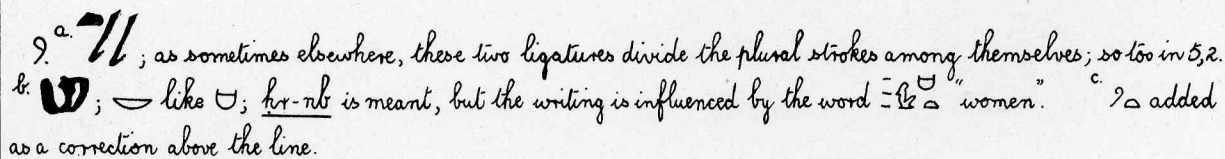 9. a. ; as sometimes elsewhere, these two ligatures divide the plural strokes among themselves; so too in 5,2.
b. ; 𓎟 like 𓎺; ḥr-nb is meant, but the writing is influenced by the word "women". c. added
as a correction above the line.